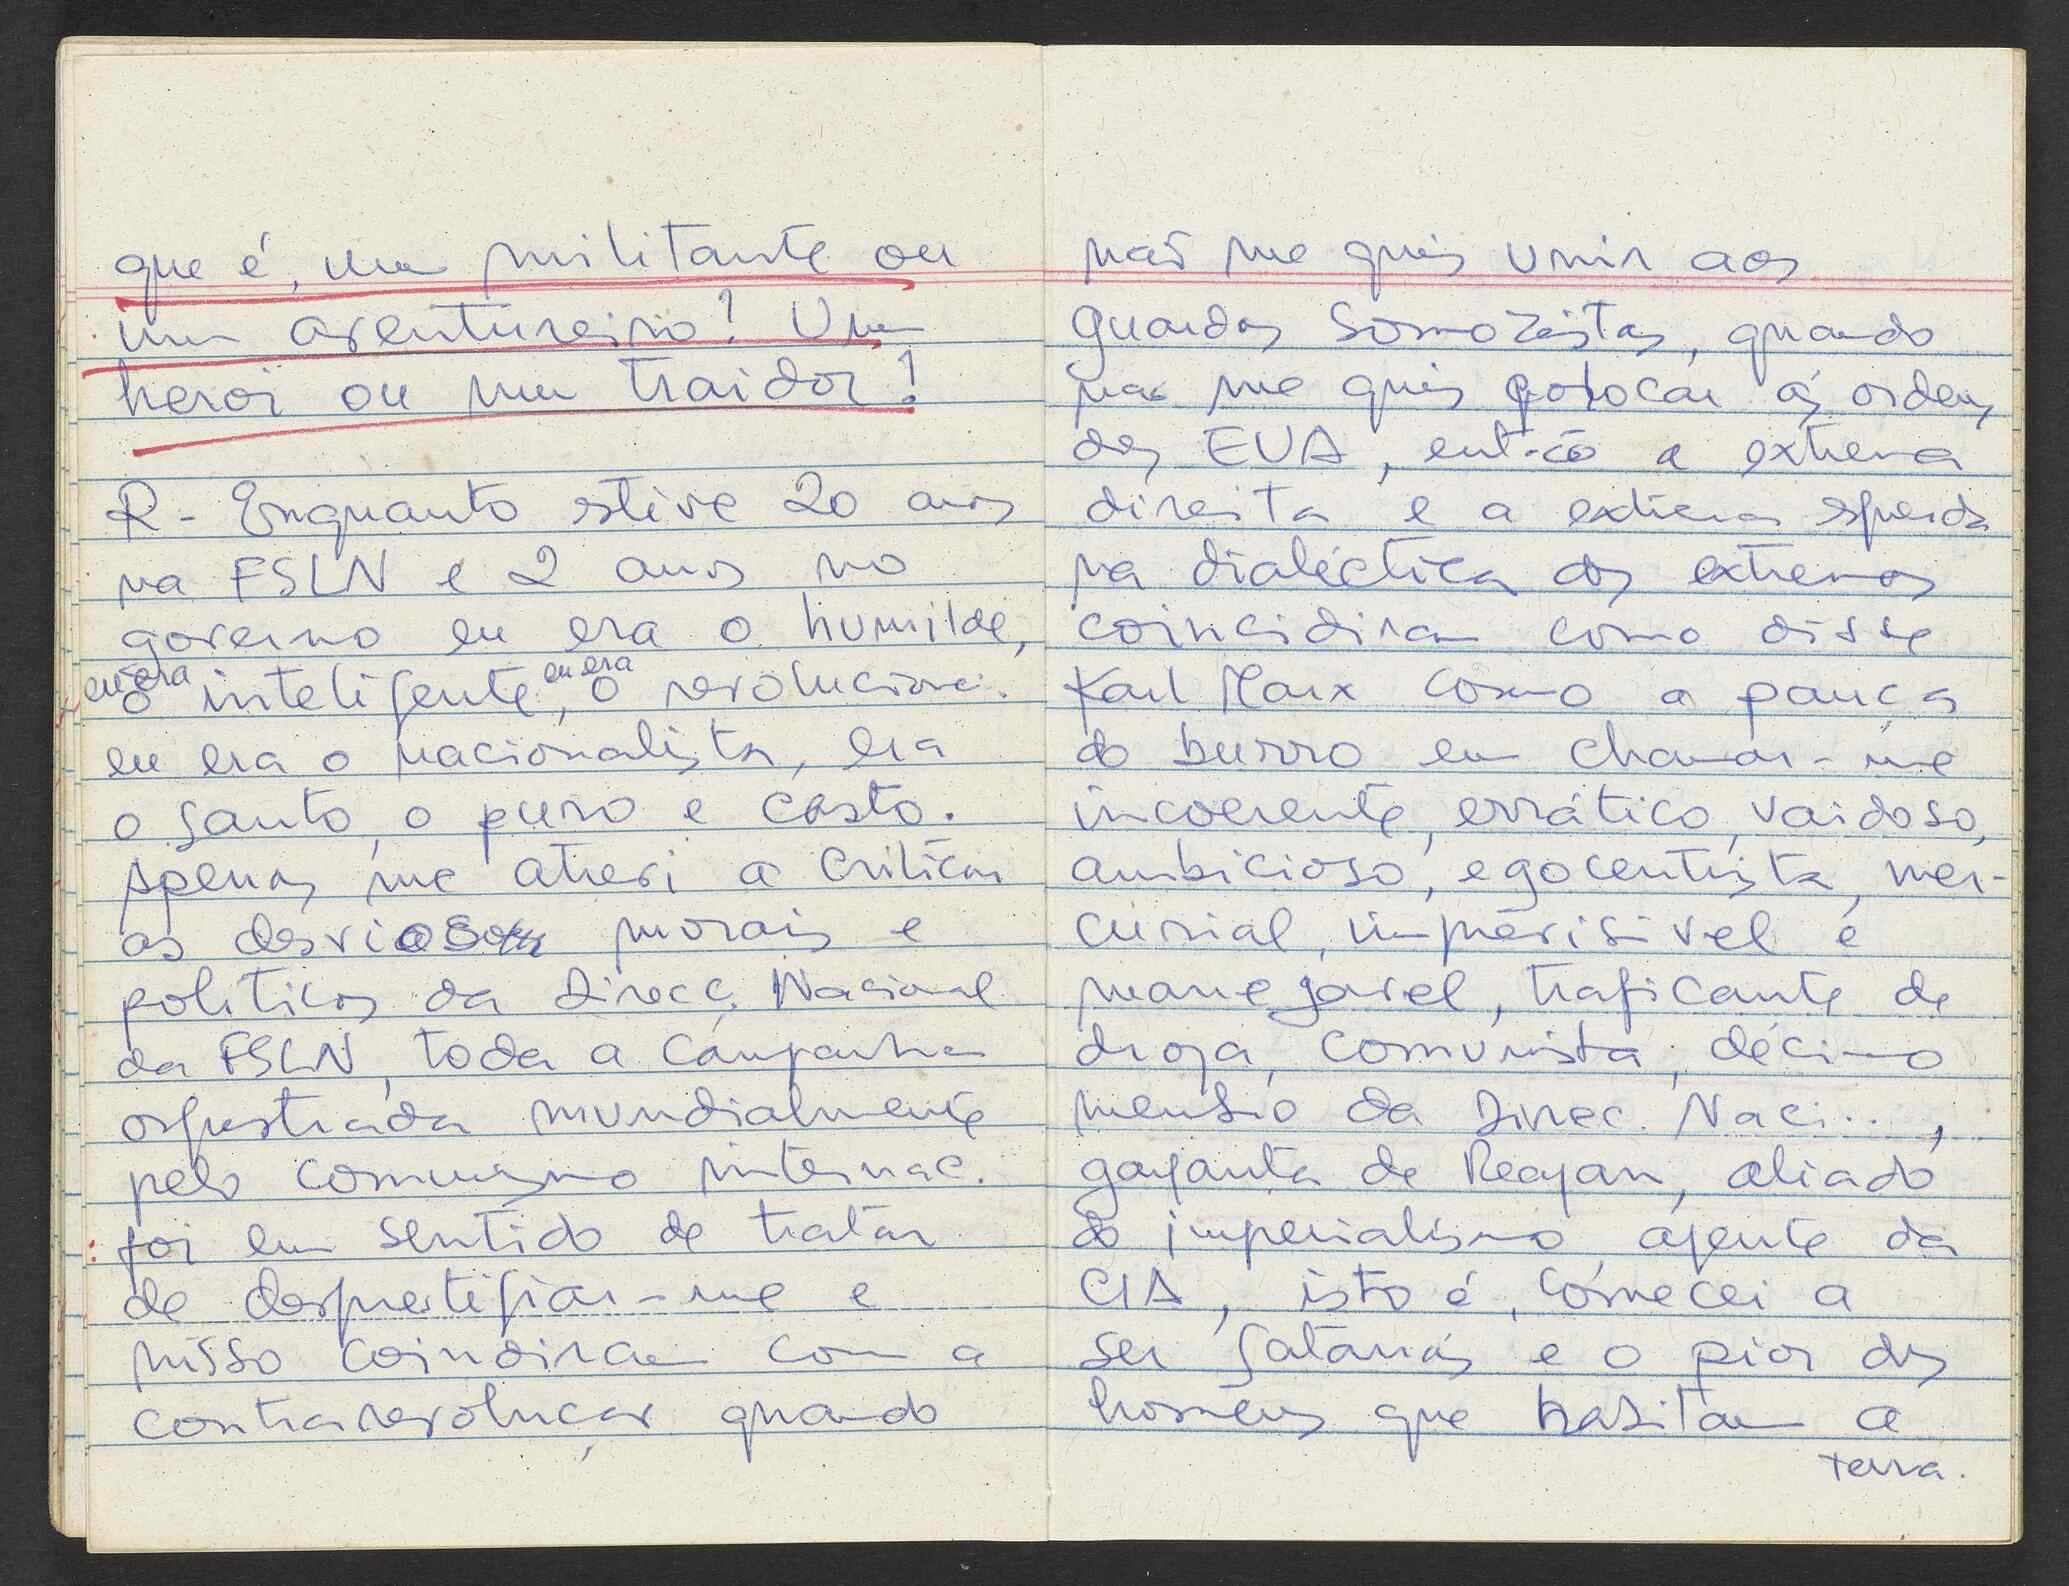 que é, um militante ou
um aventureiro? Um
heroi ou um traidor?
R - Enquanto estive 20 anos
na FSLN e 2 anos no
governo eu era o humilde,
eu era eu era
o inteligente, o revolucioná.
eu era o nacionalista, era
o santo, o puro e casto.
Apenas me atrevi a criticar
os desvios morais e
politicos da Direcç. Nacional
da FSLN, toda a campanha
orquestrada mundialmente
pelo comunismo internac.
foi em sentido de tratar
de desprestigiar-me e
nisso coindiram com a
contrarevolução quando
não me quis unir aos
guardas Somozistas, quando
não me quis colocar ás ordens
dos EUA, então a extrema
direita e a extrema esquerda
na dialéctica dos extremos
coincidiram como disse
Karl Marx como a pança
do burro em chamar-me
incoerente, errático, vaidoso,
ambicioso, egocentrista, mer-
curial, imprevisivel e
manegavel, traficante de
droga, comunista, décimo
membro da Direc. Naci...,
garganta de Reagan, aliado
do imperialismo agente da
CIA, isto é, comecei a
ser satanás e o pior dos
homens que habitam a
terra.